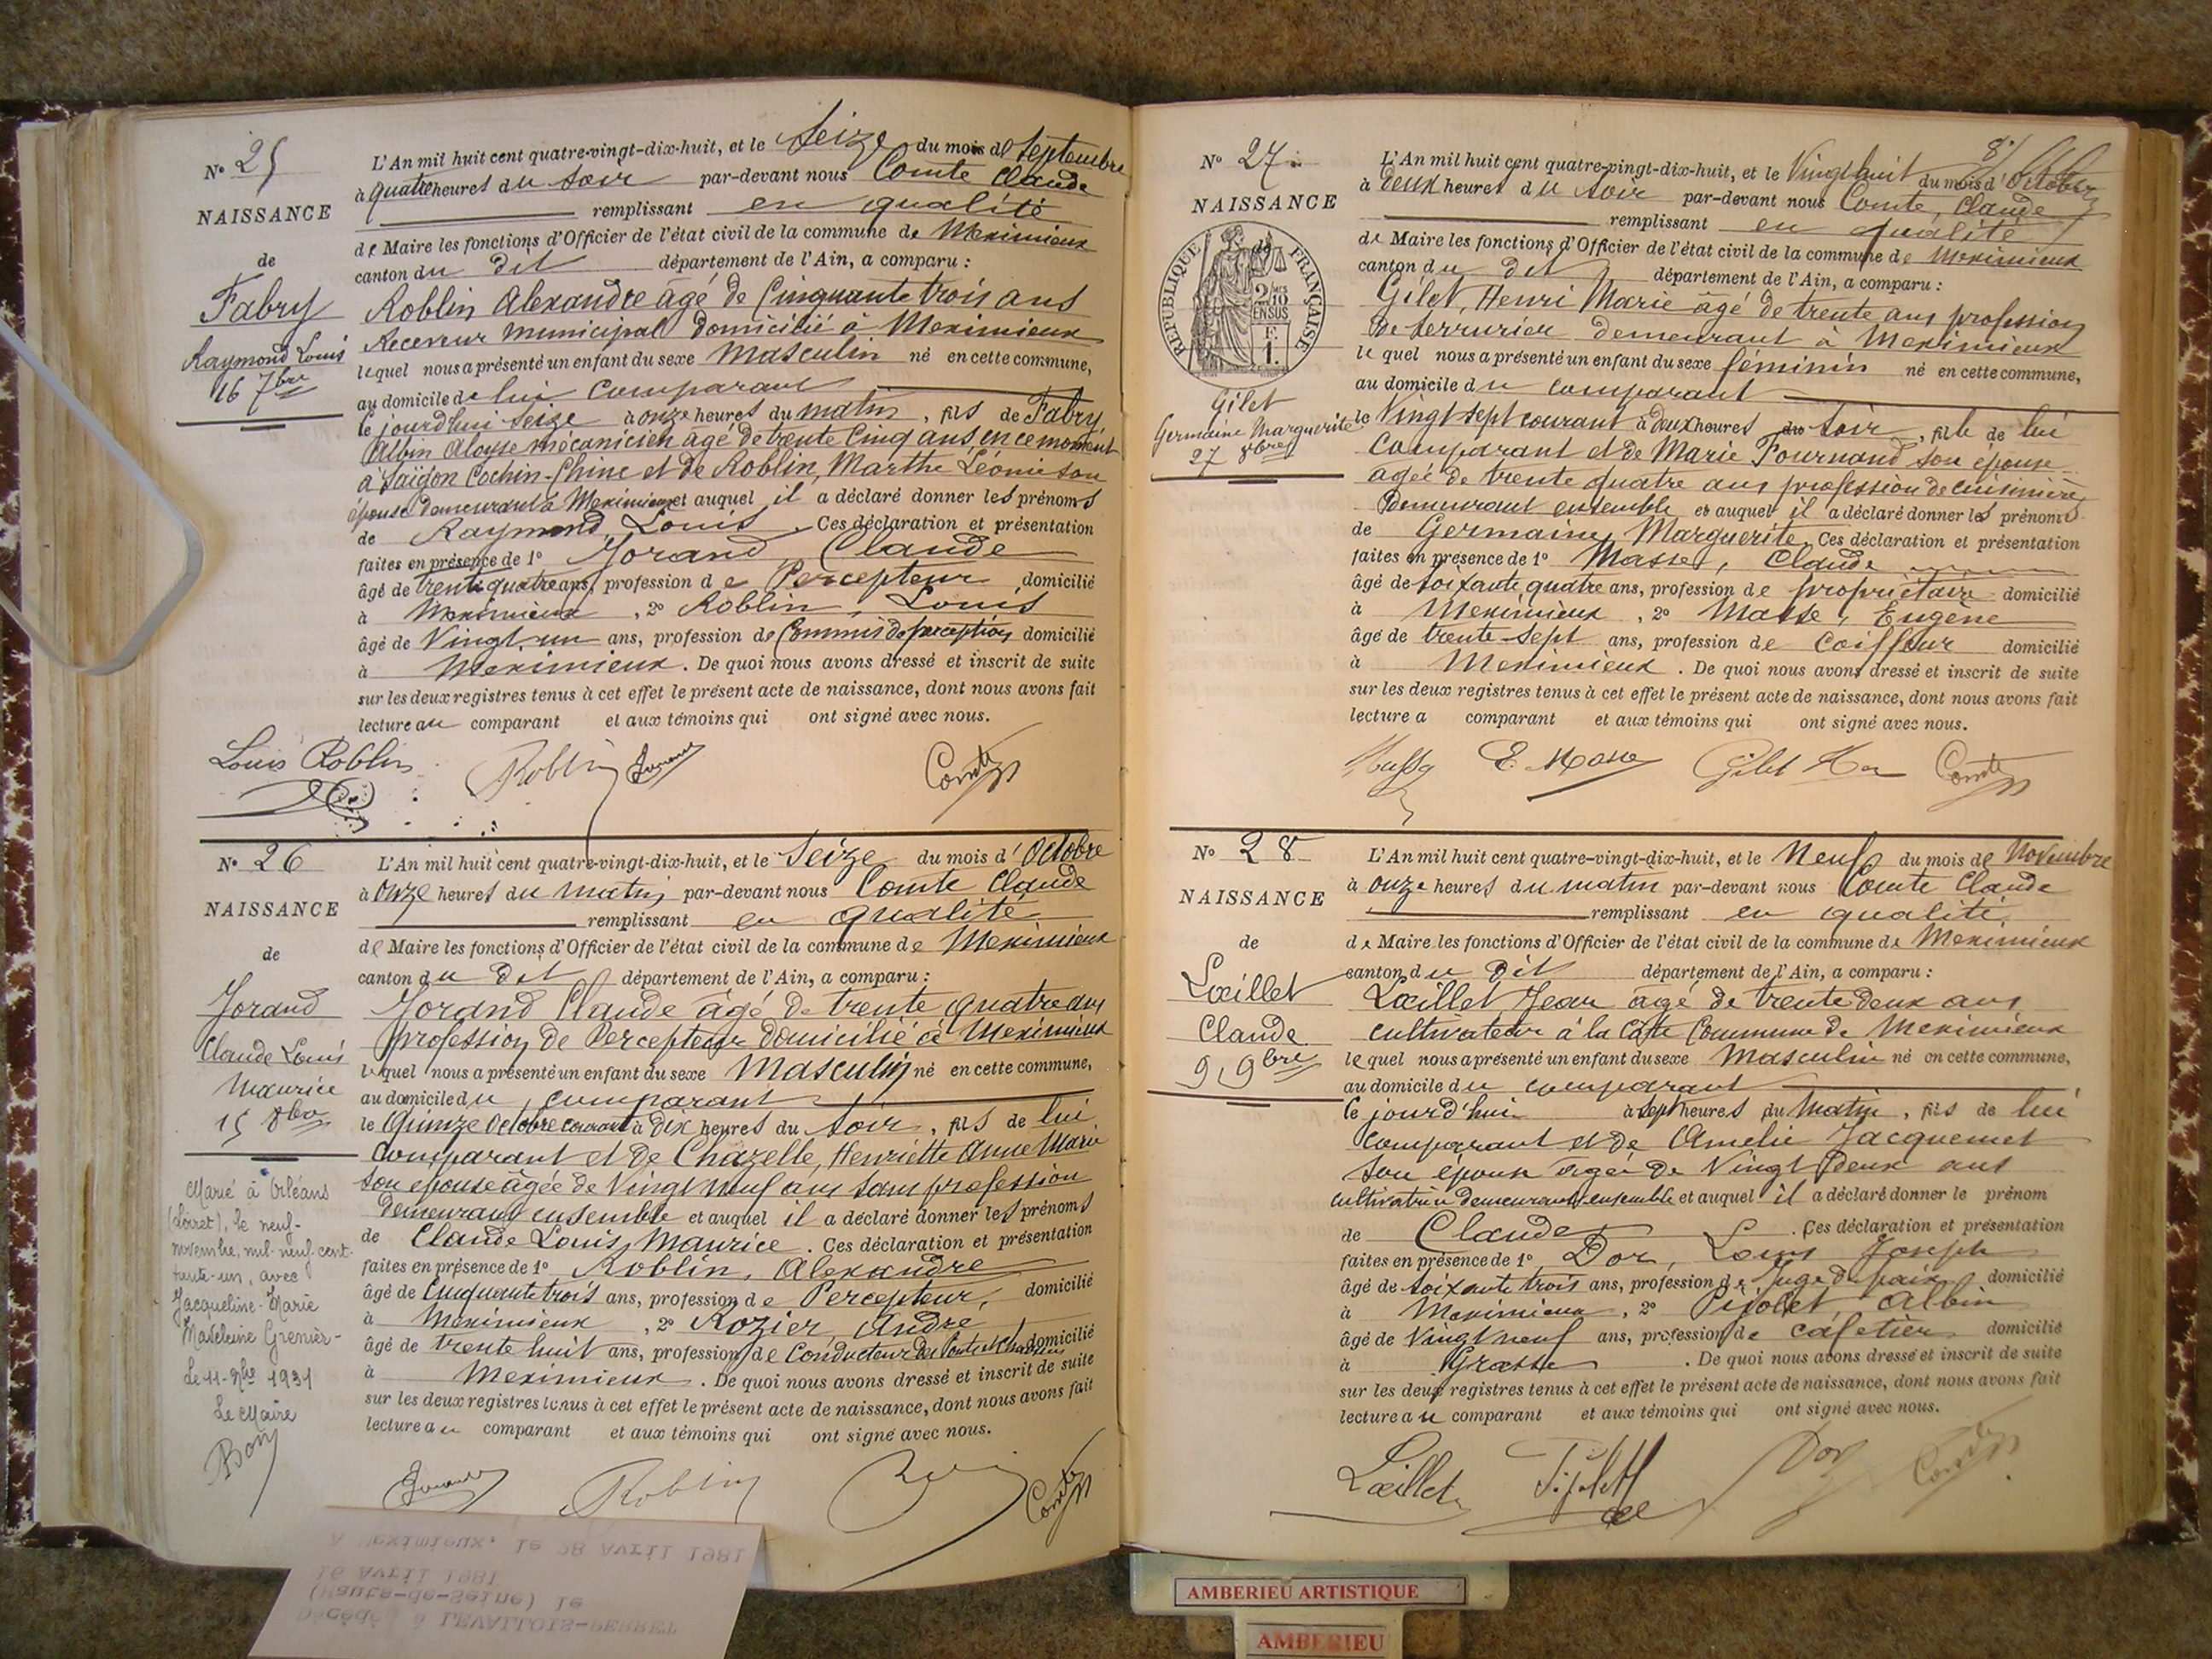 N° 25
NAISSANCE
de
Fabry
Raymond Louis
16 7bre
L'An mil huit cent quatre-vingt-dix-huit, et le Seize du mois de Septembre
à quatre heures du soir par-devant nous Comte Claude
remplissant en qualité
de Maire les fonctions d'Officier de l'état civil de la commune de Meximieux
canton du dit département de l'Ain, a comparu :
Roblin Alexandre âgé de Cinquante trois ans
Receveur municipal domicilié à Meximieux
lequel nous a présenté un enfant du sexe Masculin né en cette commune,
au domicile de lui comparant
le jourd'hui Seize à onze heures du matin, fils de Fabry,
Albin Aloyse mécanicien âgé de trente Cinq ans, en ce moment
à Saïgon Cochin-Chine et de Roblin, Marthe Léonie son
épouse demeurant à Meximieux et auquel il a déclaré donner les prénoms
de Raymond, Louis. Ces déclaration et présentation
faites en présence de 1° Jorand, Claude
âgé de trente quatre ans, profession de Percepteur domicilié
à Meximieux, 2° Roblin, Louis
âgé de Vingt un ans, profession de Commis de perception domicilié
à Meximieux. De quoi nous avons dressé et inscrit de suite
sur les deux registres tenus à cet effet le présent acte de naissance, dont nous avons fait
lecture au comparant et aux témoins qui ont signé avec nous.
Louis Roblin Roblin Jorand Comte
N° 26
NAISSANCE
de
Jorand
Claude Louis
Maurice
15 8bre
Marié à Orléans
(Loiret), le neuf-
novembre, mil-neuf-cent-
trente-un, avec
Jacqueline-Marie
Madeleine Grenier-
Le 11-9bre 1931
Le Maire
L'An mil huit cent quatre-vingt-dix-huit, et le Seize du mois d'Octobre
à Onze heures du matin par-devant nous Comte Claude
remplissant en qualité
de Maire les fonctions d'Officier de l'état civil de la commune de Meximieux
canton du dit département de l'Ain, a comparu :
Jorand Claude âgé de trente quatre ans
profession de Percepteur domicilié à Meximieux
lequel nous a présenté un enfant du sexe Masculin né en cette commune,
au domicile du comparant
le Quinze Octobre courant à Dix heures du Soir, fils de lui
Comparant et de Chazelle, Henriette Anne Marie
son epouse âgée de Vingt neuf ans sans profession
demeurant ensemble et auquel il a déclaré donner les prénoms
de Claude Louis, Maurice. Ces déclaration et présentation
faites en présence de 1° Roblin, Alexandre
âgé de Cinquante trois ans, profession de Percepteur, domicilié
à Meximieux, 2° Rozier André
âgé de trente huit ans, profession de Conducteur des Ponts et Chaussées domicilié
à Meximieux. De quoi nous avons dressé et inscrit de suite
sur les deux registres tenus à cet effet le présent acte de naissance, dont nous avons fait
lecture au comparant et aux témoins qui ont signé avec nous.
Jorand Roblin Comte
Décédé à LEVALLOIS-PERRET
(Hauts-de-Seine) le
16 Avril 1981
A Meximieux, le 28 Avril 1981
N° 27
NAISSANCE
de
RÉPUBLIQUE FRANÇAISE
2/10 EN SUS
F. 1.
Gilet
Germaine Marguerite
27 8bre
L'An mil huit cent quatre-vingt-dix-huit, et le Vingt huit du mois d'Octobre
à Deux heures du soir par-devant nous Comte, Claude
remplissant en qualité
de Maire les fonctions d'Officier de l'état civil de la commune de Meximieux
canton du dit département de l'Ain, a comparu :
Gilet, Henri Marie âgé de trente ans profession
de serrurier demeurant à Meximieux
lequel nous a présenté un enfant du sexe féminin né en cette commune,
au domicile du comparant
le Vingt sept courant à deux heures du soir, fille de lui
comparant et de Marie Fournand son épouse
agée de trente quatre ans profession de cuisinière
Demeurant ensemble et auquel il a déclaré donner les prénoms
de Germaine, Marguerite. Ces déclaration et présentation
faites en présence de 1° Masse, Claude
âgé de soixante quatre ans, profession de propriétaire domicilié
à Meximieux, 2° Masse, Eugène
âgé de trente-sept ans, profession de Coiffeur domicilié
à Meximieux. De quoi nous avons dressé et inscrit de suite
sur les deux registres tenus à cet effet le présent acte de naissance, dont nous avons fait
lecture a comparant et aux témoins qui ont signé avec nous.
Masse E. Masse Gilet Comte
N° 28
NAISSANCE
de
Lœillet
Claude
9 9bre
L'An mil huit cent quatre-vingt-dix-huit, et le Neuf du mois de Novembre
à onze heures du matin par-devant nous Comte Claude
remplissant en qualité
de Maire les fonctions d'Officier de l'état civil de la commune de Meximieux
canton du dit département de l'Ain, a comparu :
Lœillet Jean âgé de trente deux ans
cultivateur à la Côte Commune de Meximieux
lequel nous a présenté un enfant du sexe Masculin né en cette commune,
au domicile du comparant
le jourd'hui à sept heures du Matin, fils de lui
comparant et de Amelie Jacquemet
son épouse agée de Vingt deux ans
cultivatrice demeurant ensemble et auquel il a déclaré donner le prénom
de Claude. Ces déclaration et présentation
faites en présence de 1° Dor, Louis Joseph
âgé de soixante trois ans, profession de Juge de paix domicilié
à Meximieux, 2° Pijolet, Albin
âgé de Vingt neuf ans, profession de cafetier domicilié
à Grasse. De quoi nous avons dressé et inscrit de suite
sur les deux registres tenus à cet effet le présent acte de naissance, dont nous avons fait
lecture au comparant et aux témoins qui ont signé avec nous.
Lœillet Pijolet Dor Comte
AMBERIEU ARTISTIQUE
AMBERIEU